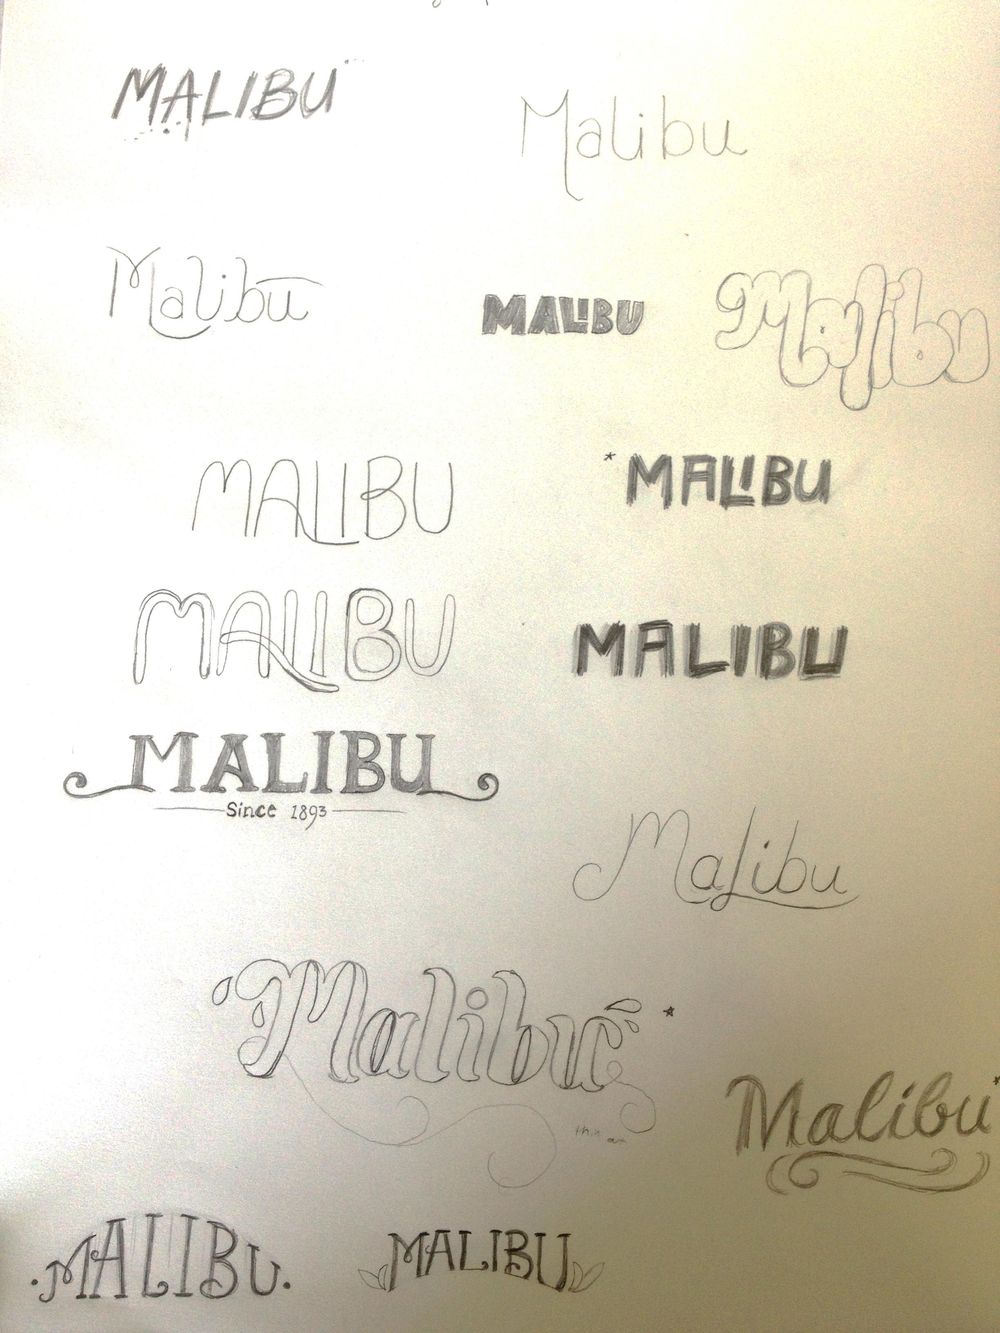 MALIBU
Malibu
Malibu
MALIBU
Malibu
MALIBU
* MALIBU
MALIBU
MALIBU
MALIBU
Since 1893
Malibu
Malibu *
Malibu *
MALIBU
MALIBU